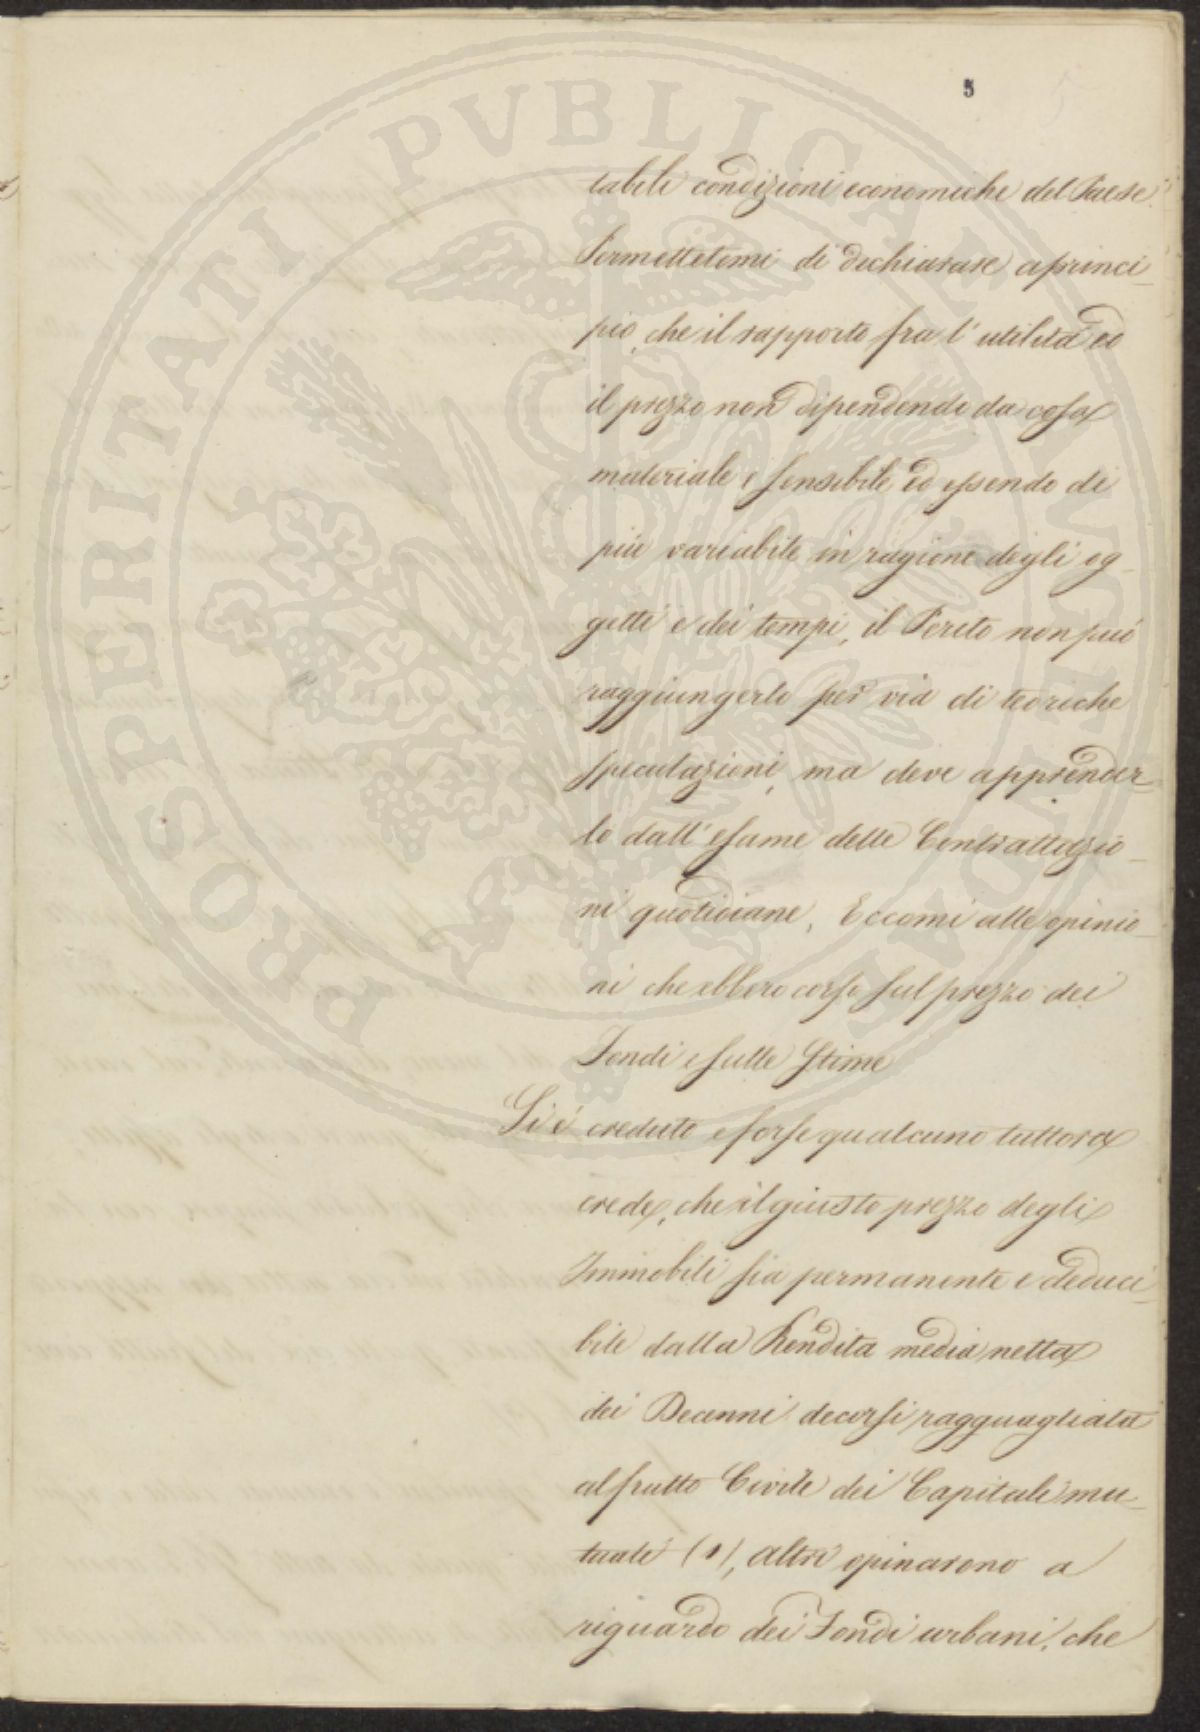 5
tabili condizioni economiche del Paese.
Permettetemi di dichiarare a princi-
pio, che il rapporto fra l'utilità ed
il prezzo non dipendendo da cosa
materiale e sensibile, ed essendo di
più variabile in ragione degli og-
getti e dei tempi, il Perito non può
raggiungerlo per via di teoriche
speculazioni, ma deve apprender-
lo dall'esame delle Contrattazio-
ni quotidiane. Eccomi alle opinio-
ni che ebbero corso sul prezzo dei
Fondi e sulle Stime
Si è creduto e forse qualcuno tuttora
crede, che il giusto prezzo degli
Immobili sia permanente e deduci-
bile dalla Rendita media netta
dei Decenni decorsi ragguagliata
al frutto Civile dei Capitali mu-
tuati (1), altri opinarono a
riguardo dei Fondi urbani, che
PROSPERITATI PVBLICAE